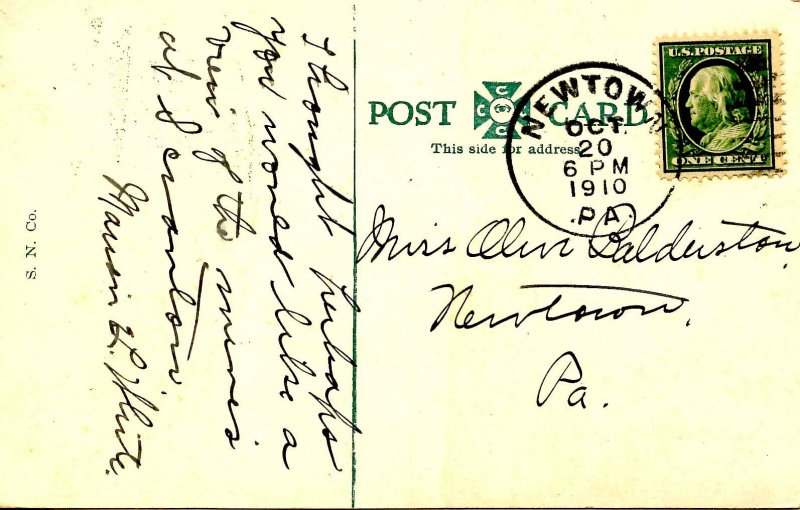 Thought perhaps
you would like a
view of the mines
at Scranton.
H. White.
S. N. Co.
POST CARD
This side for address
U.S. POSTAGE
ONE CENT
NEWTOWN
OCT.
20
6 PM
1910
PA.
Miss Olive Balderston,
Newtown,
Pa.